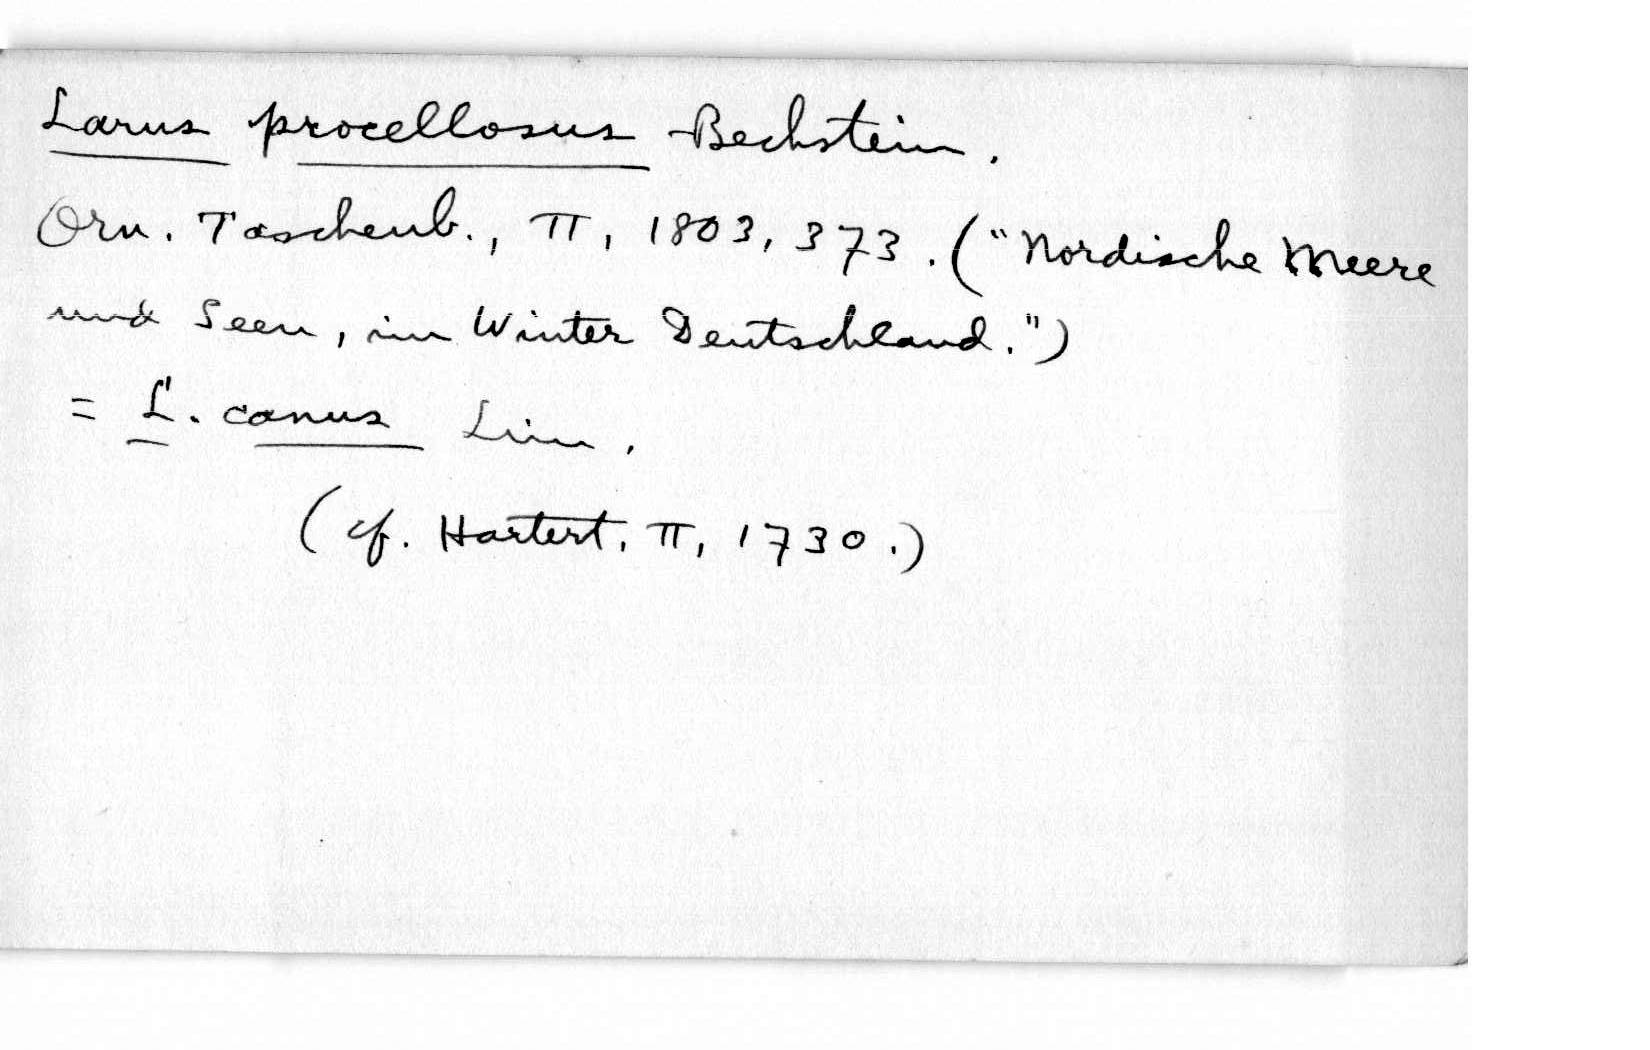 Larus procellosus Bechstein.
Orn. Taschenb., II, 1803, 373. ("Nordische Meere
und Seen, im Winter Deutschland.")
= L. canus Linn.
(cf. Hartert, II, 1730.)